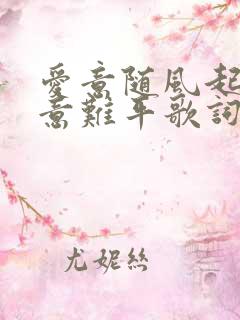 愛意随風起
意難平歌詞
尤妮絲